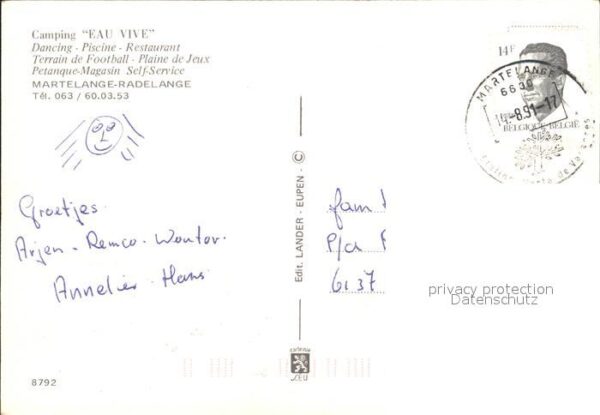 Camping "EAU VIVE"
Dancing - Piscine - Restaurant
Terrain de Football - Plaine de Jeux
Petanque-Magasin Self-Service
MARTELANGE-RADELANGE
Tél. 063 / 60.03.53
Groetjes
Arjen - Remco - Wouter.
Annelies - Hans
8792
Edit. LANDER - EUPEN - ©
14F
BELGIQUE-BELGIË
MARTELANGE
6630
14.-8.91-17
fam
P/a
6137
privacy protection
Datenschutz